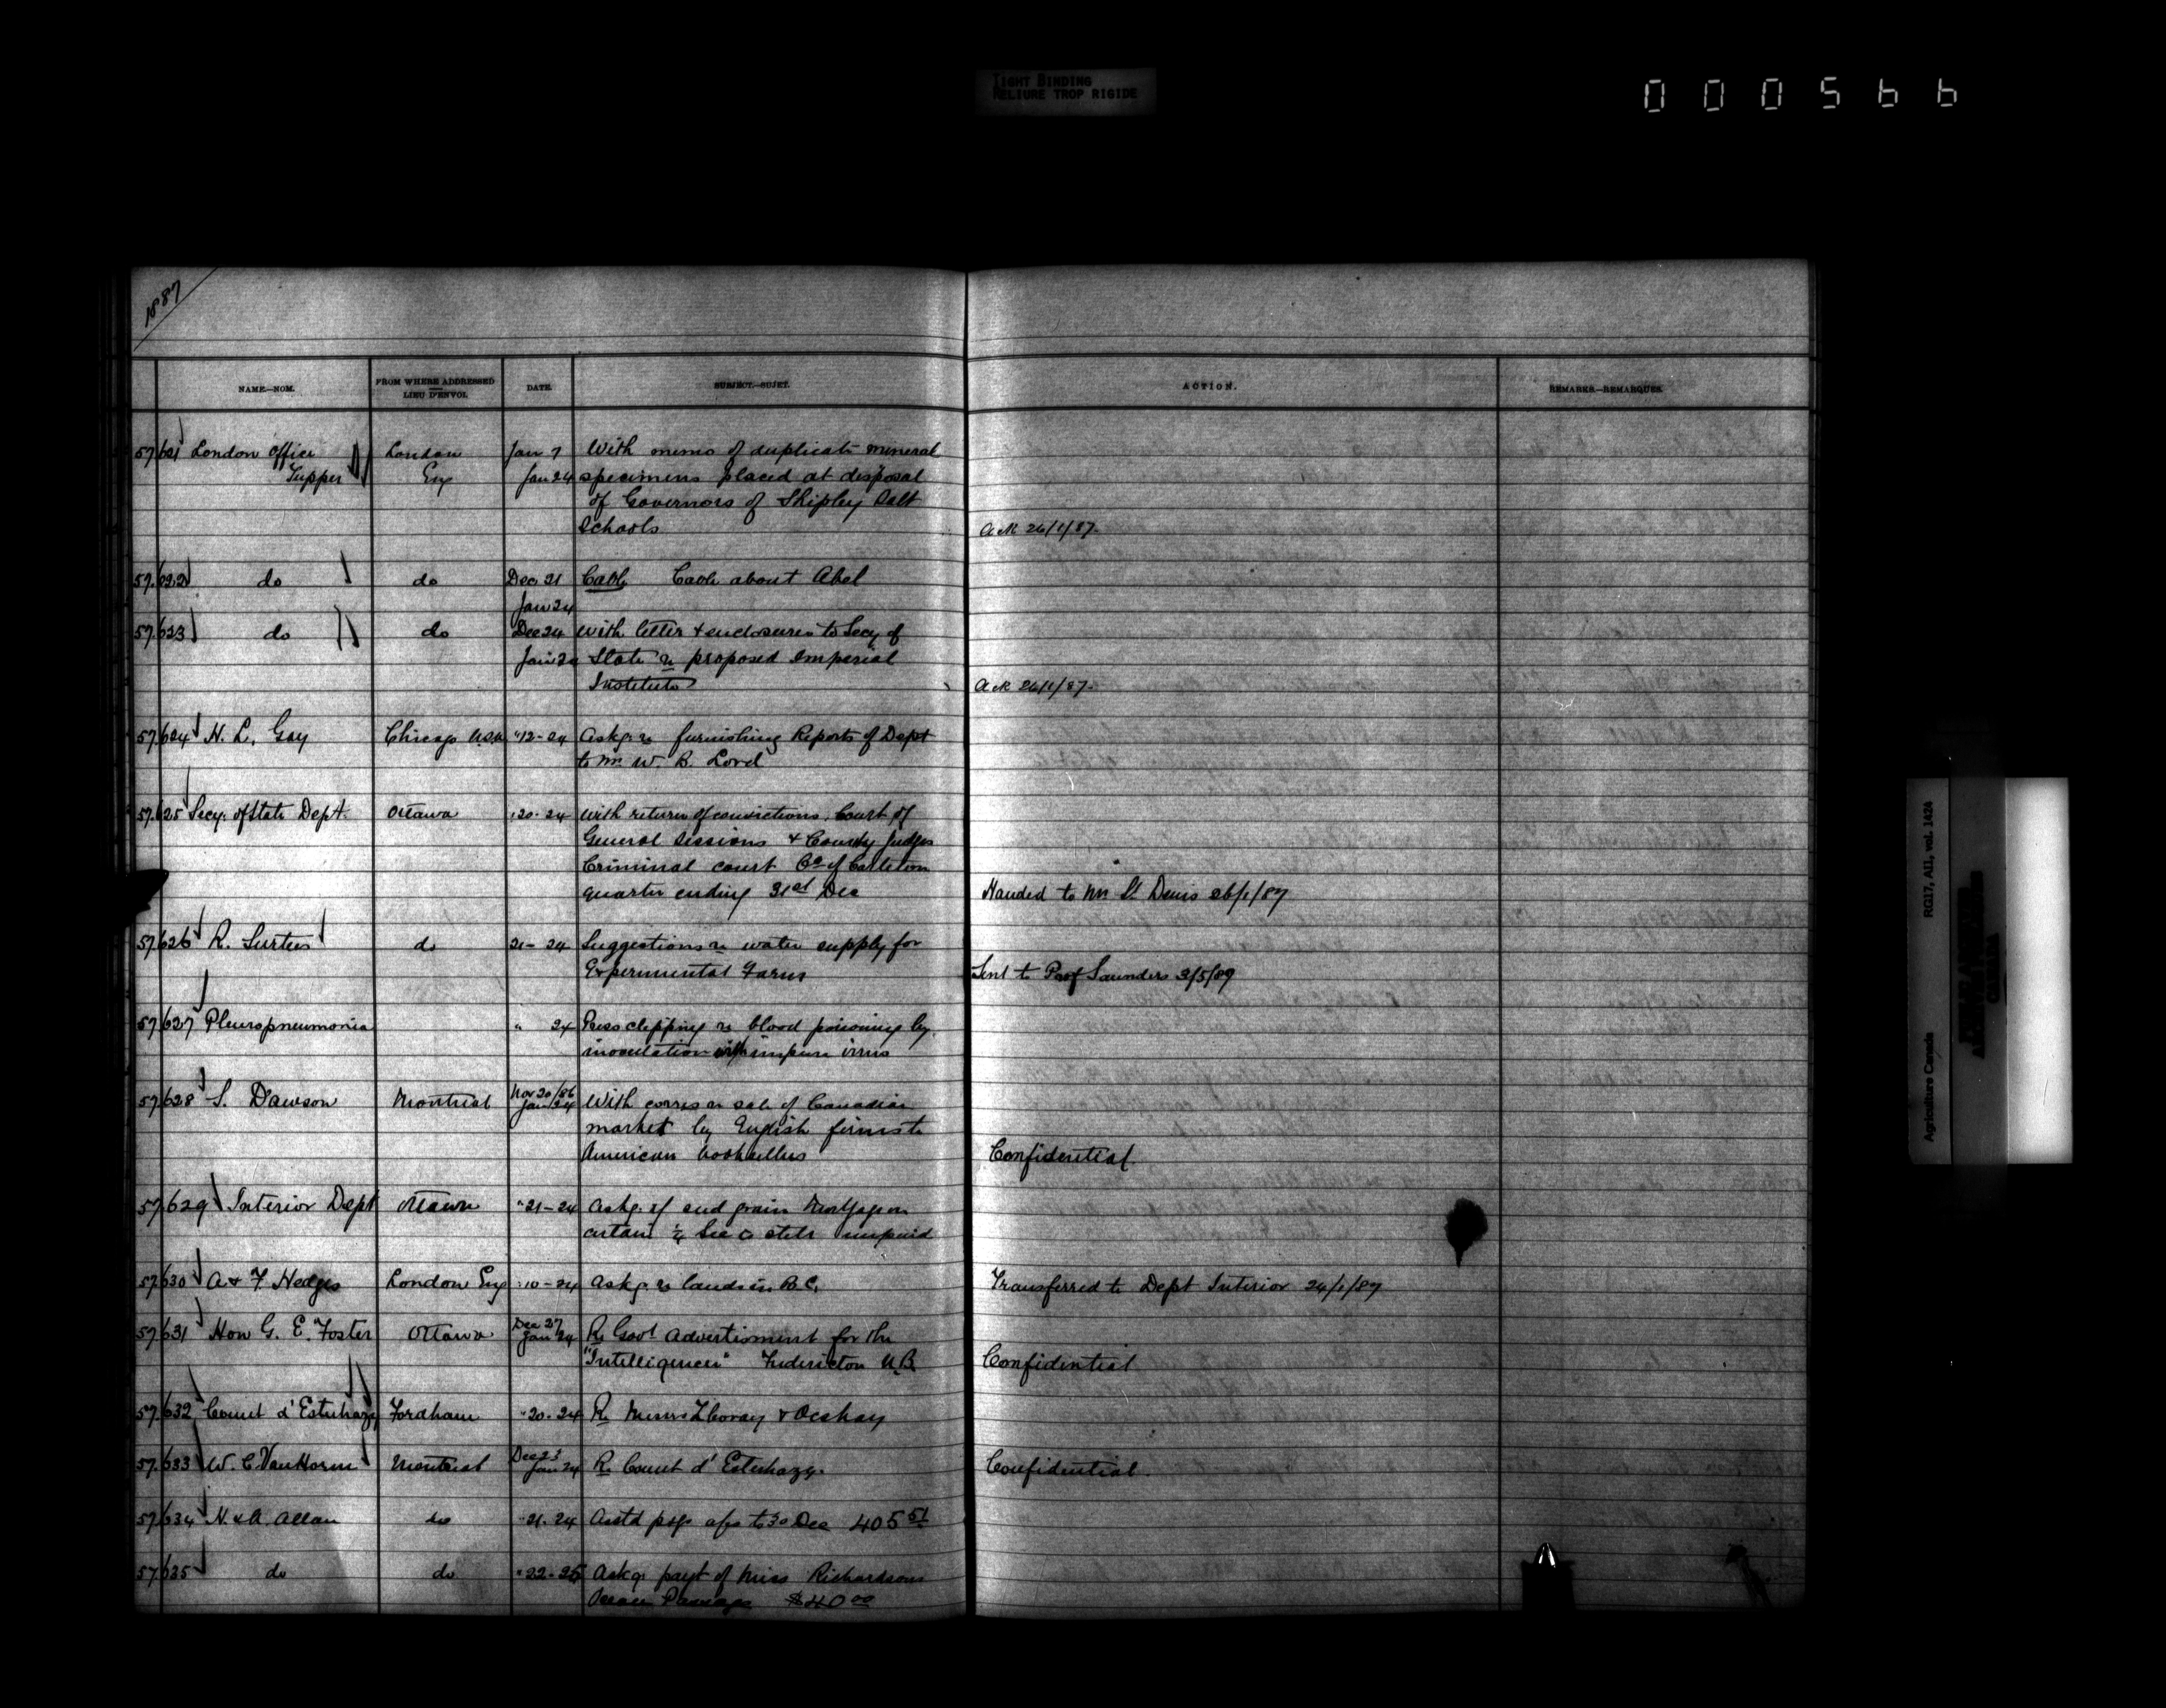 TIGHT BINDING
RELIURE TROP RIGIDE
000566
1887
NAME.—NOM.
FROM WHERE ADDRESSED
LIEU D'ENVOI.
DATE.
SUBJECT.—SUJET.
ACTION.
REMARKS.—REMARQUES.
57.621 London Office London Jan 7 With memo of duplicate mineral
Tupper Eng Jan 24 specimens placed at disposal
of Governors of Shipley Salt
Schools Ack 26/1/87.
57.622 do do Dec 21 Cable Cable about Abel
Jan 24
57.623 do do Dec 24 With letter & enclosures to Secy of
Jan 24 State re proposed Imperial
Institute Ack 26/1/87.
57.624 H. L. Gay Chicago U.S.A. "12-24 Askg. re furnishing Reports of Dept
to Mr. W. B. Lord
57.625 Secy. of State Dept. Ottawa "20-24 With return of convictions, Court of
General Sessions & County Judges
Criminal Court Co of Carleton
quarter ending 31st Dec Handed to Mr St. Denis 26/1/87
57.626 R. Surtees do 21-24 Suggestions re water supply for
Experimental Farm Sent to Prof Saunders 3/5/89
57.627 Pleuropneumonia " 24 Press clipping re blood poisoning by
inoculation with impure virus
57.628 S. Dawson Montreal Nov 20/86
Jan 24 With corres re sale of Canadian
market by English firms to
American booksellers Confidential.
57.629 Interior Dept Ottawa "21-24 Askg. if seed grain Mortgage on
certain ½ Sec is still unpaid
57.630 A & F. Hedges London Eng "10-24 Askg. re lands in B.C. Transferred to Dept Interior 24/1/87
57.631 Hon G. E. Foster Ottawa Dec 27
Jan 24 Re Govt Advertisment for the
"Intelligencer" Fredericton N.B. Confidential
57.632 Count d'Esterhazy Fordham "20-24 Re Messrs Zboray & Ocskay
57.633 W. C. Van Horne Montreal Dec 23
Jan 24 Re Count d'Esterhazy. Confidential.
57.634 H. & A. Allan do "21-24 Asstd psgs a/c to 30 Dec 405 51
57.635 do do "22-25 Askg payt of Miss Richardsons
Ocean Passage $40 00
Agriculture Canada RG17, AI1, vol. 1424